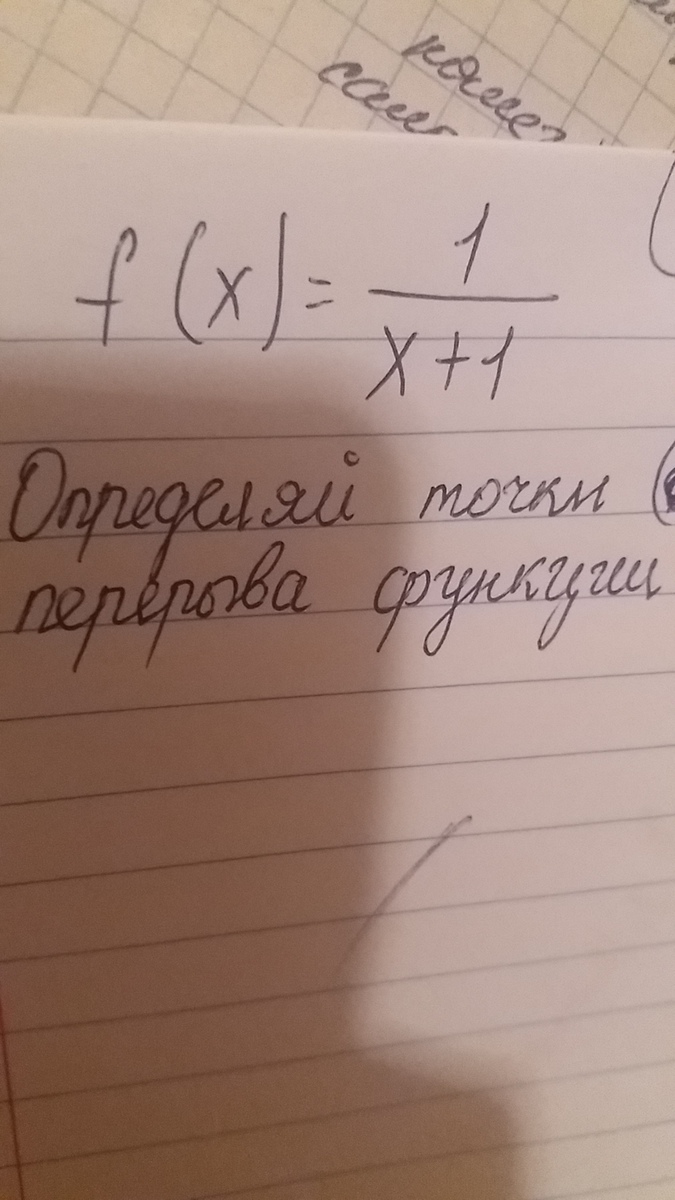 f(x) = 1/(x+1)
Определяй точки
перерыва функции